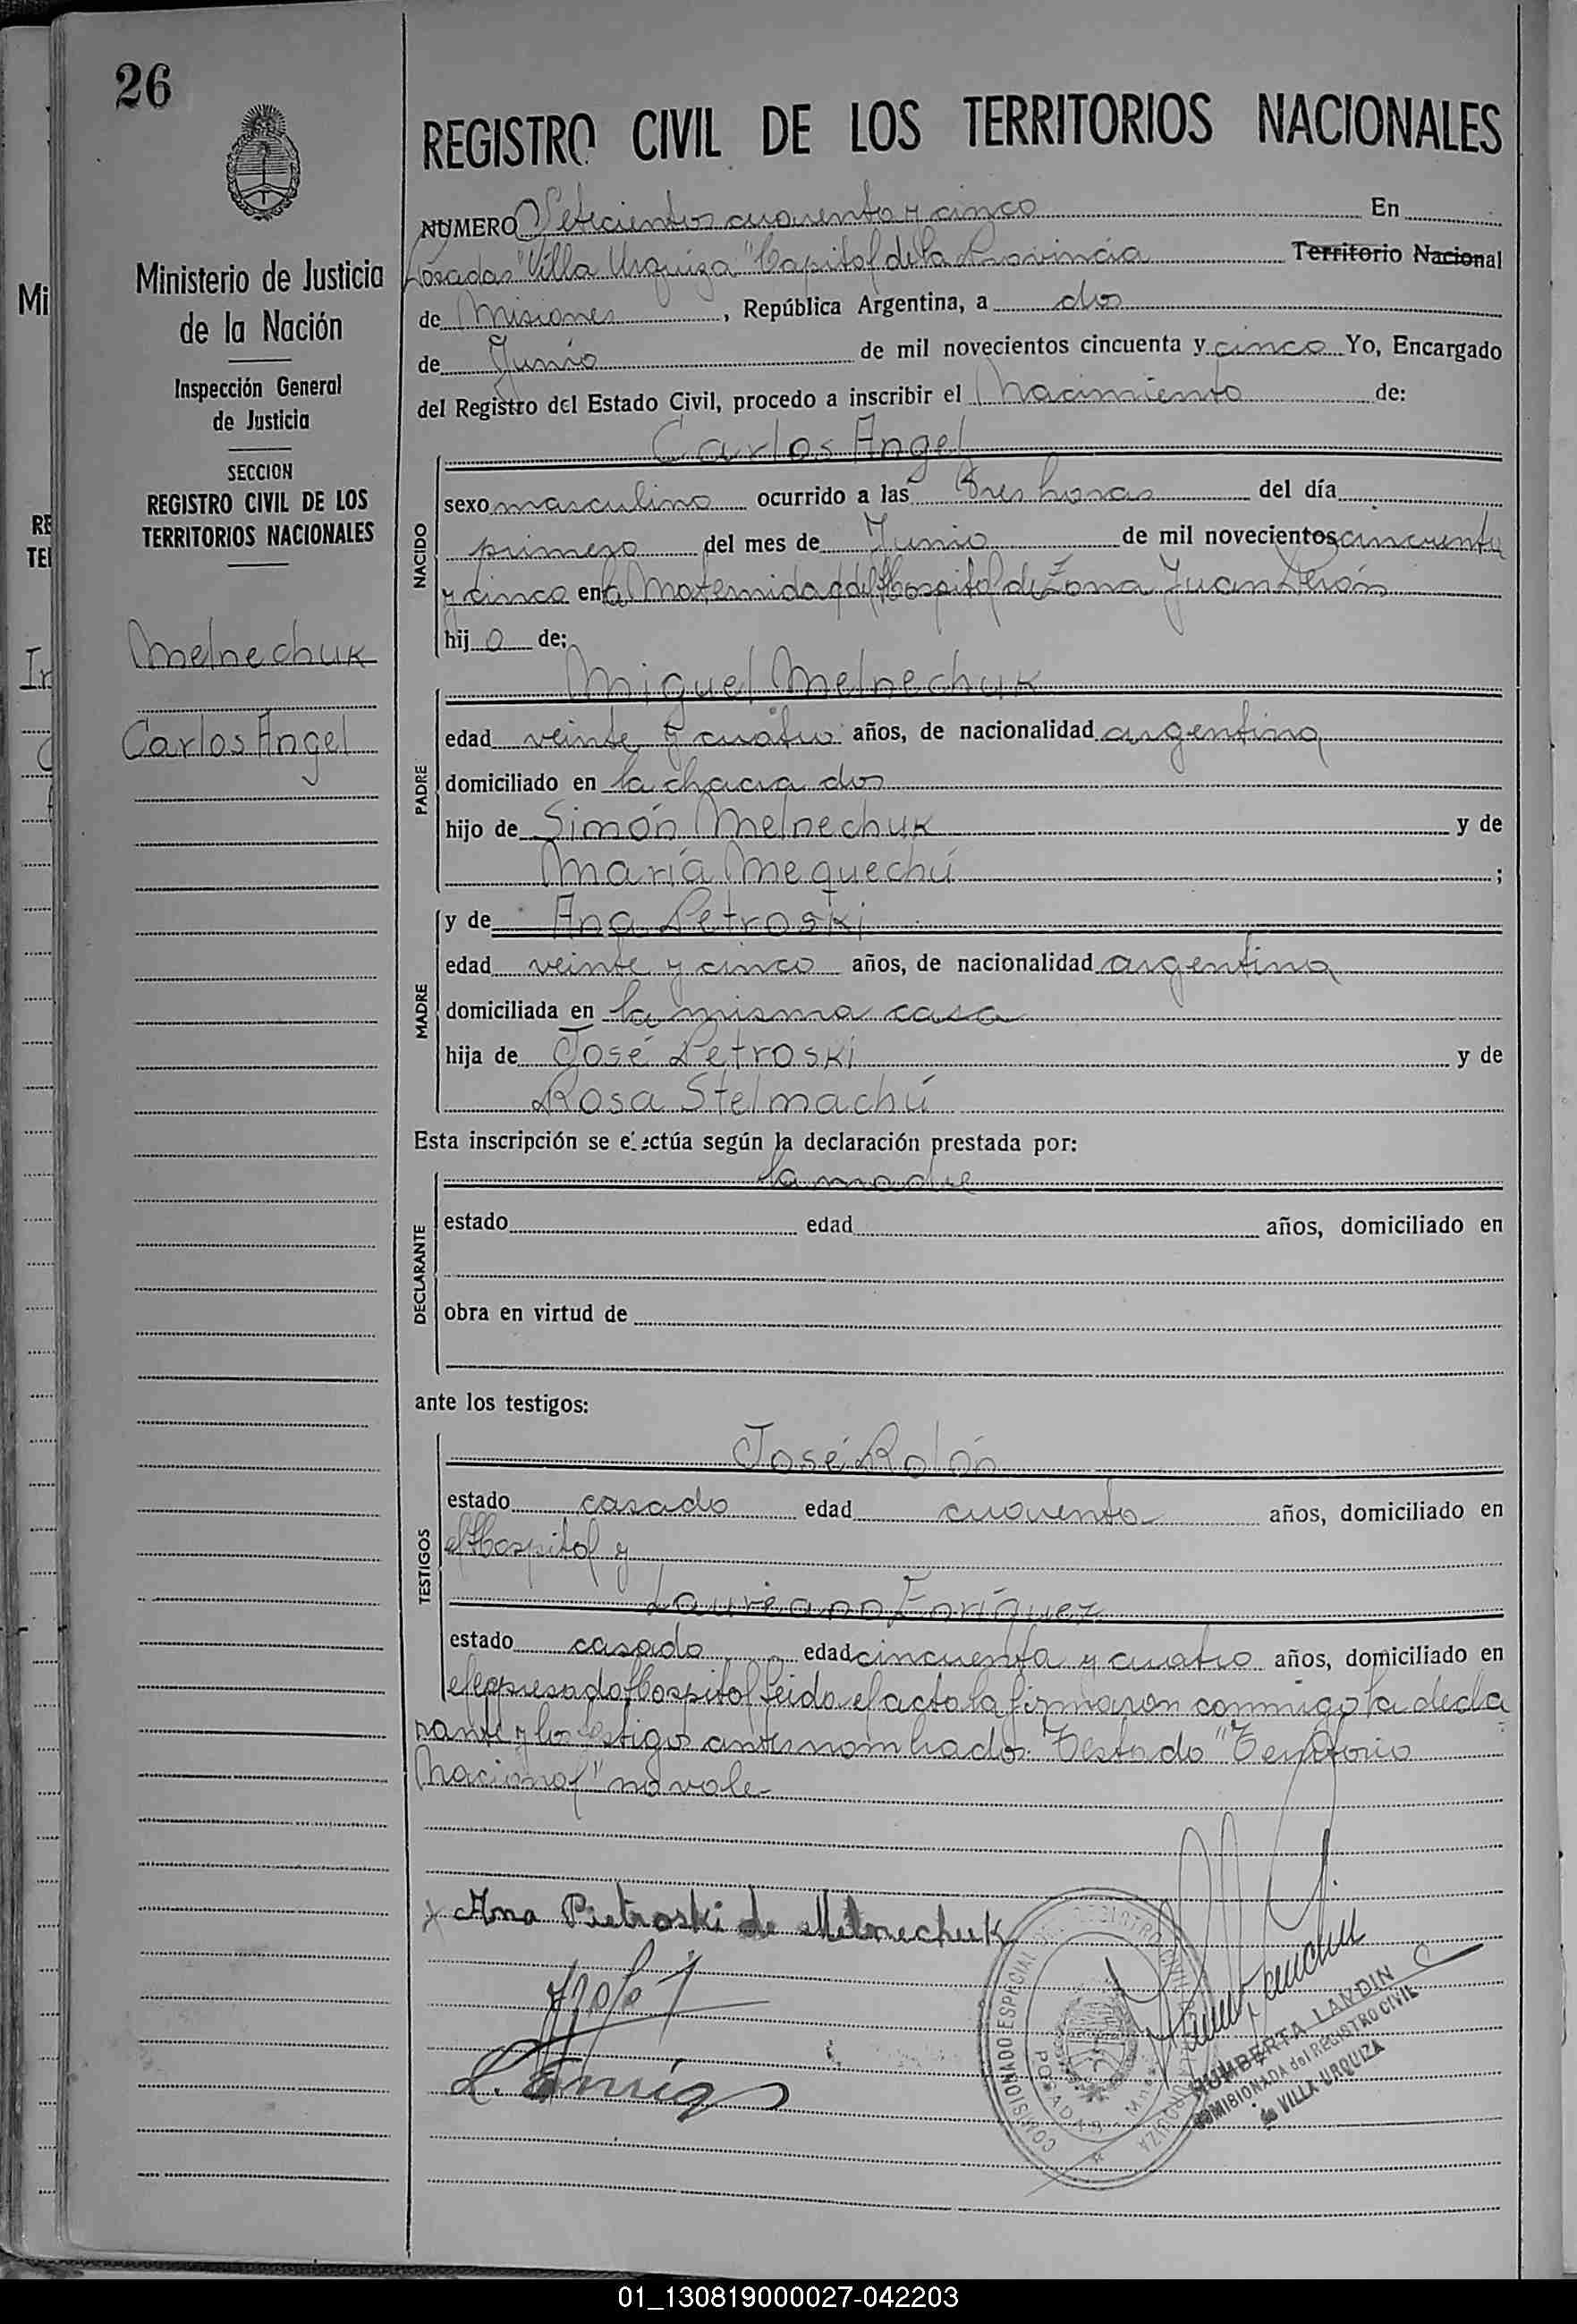 26
Ministerio de Justicia
de la Nación
Inspección General
de Justicia
SECCION
REGISTRO CIVIL DE LOS
TERRITORIOS NACIONALES
Melnechuk
Carlos Angel
REGISTRO CIVIL DE LOS TERRITORIOS NACIONALES
NUMERO Setecientos cuarenta y cinco En
Posadas "Villa Urquiza" Capital de la Provincia Territorio Nacional
de Misiones, República Argentina, a dos
de Junio de mil novecientos cincuenta y cinco Yo, Encargado
del Registro del Estado Civil, procedo a inscribir el Nacimiento de:
Carlos Angel
NACIDO
sexo masculino ocurrido a las Tres horas del día
primero del mes de Junio de mil novecientos cincuenta
y cinco en la Maternidad del Hospital de Zona Juan Perón
hijo de:
Miguel Melnechuk
PADRE
edad veinte y cuatro años, de nacionalidad argentina
domiciliado en la chacra dos
hijo de Simón Melnechuk y de
María Mequechú ;
y de Ana Petroski
MADRE
edad veinte y cinco años, de nacionalidad argentina
domiciliada en la misma casa
hija de José Petroski y de
Rosa Stelmachú
Esta inscripción se efectúa según la declaración prestada por:
la madre
DECLARANTE
estado edad años, domiciliado en
obra en virtud de
ante los testigos:
José Rolón
TESTIGOS
estado casado edad cuarenta años, domiciliado en
el Hospital y
Laureano Enríquez
estado casado edad cincuenta y cuatro años, domiciliado en
el expresado Hospital Leida el acta la firmaron conmigo la decla
rante y los testigos antes nombrados. Testado "Territorio
Nacional" no vale
x Ana Pietroski de Melnechuk
L. Enriq
COMISIONADO ESPECIAL DEL REGISTRO CIVIL
VILLA URQUIZA
POSADAS - Mnes.
HUMBERTA LANDIN
COMISIONADA del REGISTRO CIVIL
de VILLA URQUIZA
01_130819000027-042203